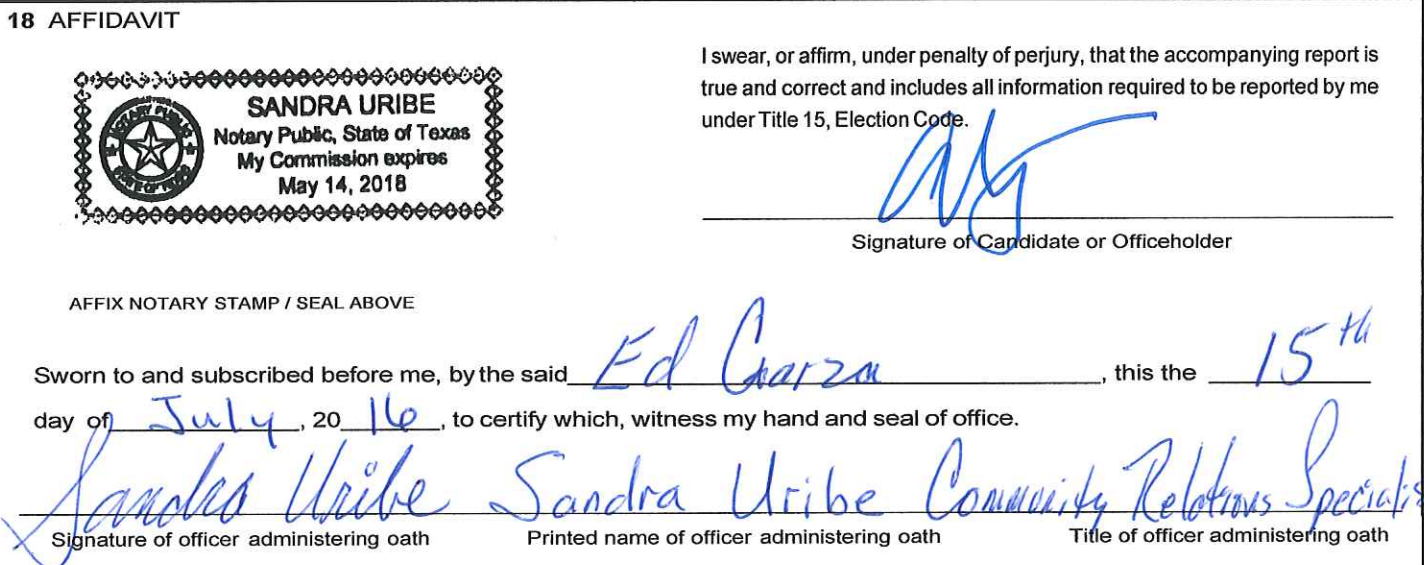 18 AFFIDAVIT
SANDRA URIBE
Notary Public, State of Texas
My Commission expires
May 14, 2018
NOTARY PUBLIC
STATE OF TEXAS
I swear, or affirm, under penalty of perjury, that the accompanying report is
true and correct and includes all information required to be reported by me
under Title 15, Election Code.
Signature of Candidate or Officeholder
AFFIX NOTARY STAMP / SEAL ABOVE
Sworn to and subscribed before me, by the said Ed Garza, this the 15th
day of July, 20 16, to certify which, witness my hand and seal of office.
Sandra Uribe Sandra Uribe Community Relations Specialis
Signature of officer administering oath Printed name of officer administering oath Title of officer administering oath